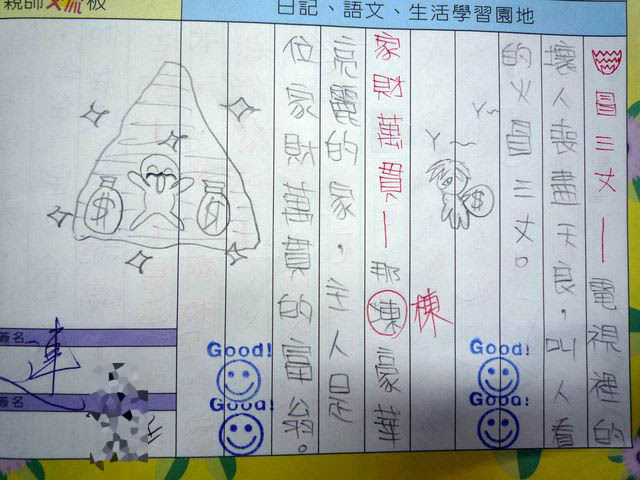 日記、語文、生活學習園地
親師交流板
冒三丈—電視裡的
壞人喪盡天良，叫人看
的火冒三丈。
Y~
Y~
棟
家財萬貫—那凍豪華
亮麗的家，主人是
位家財萬貫的富翁。
$
$
$
Good!
Good!
Good!
Good!
簽名
簽名